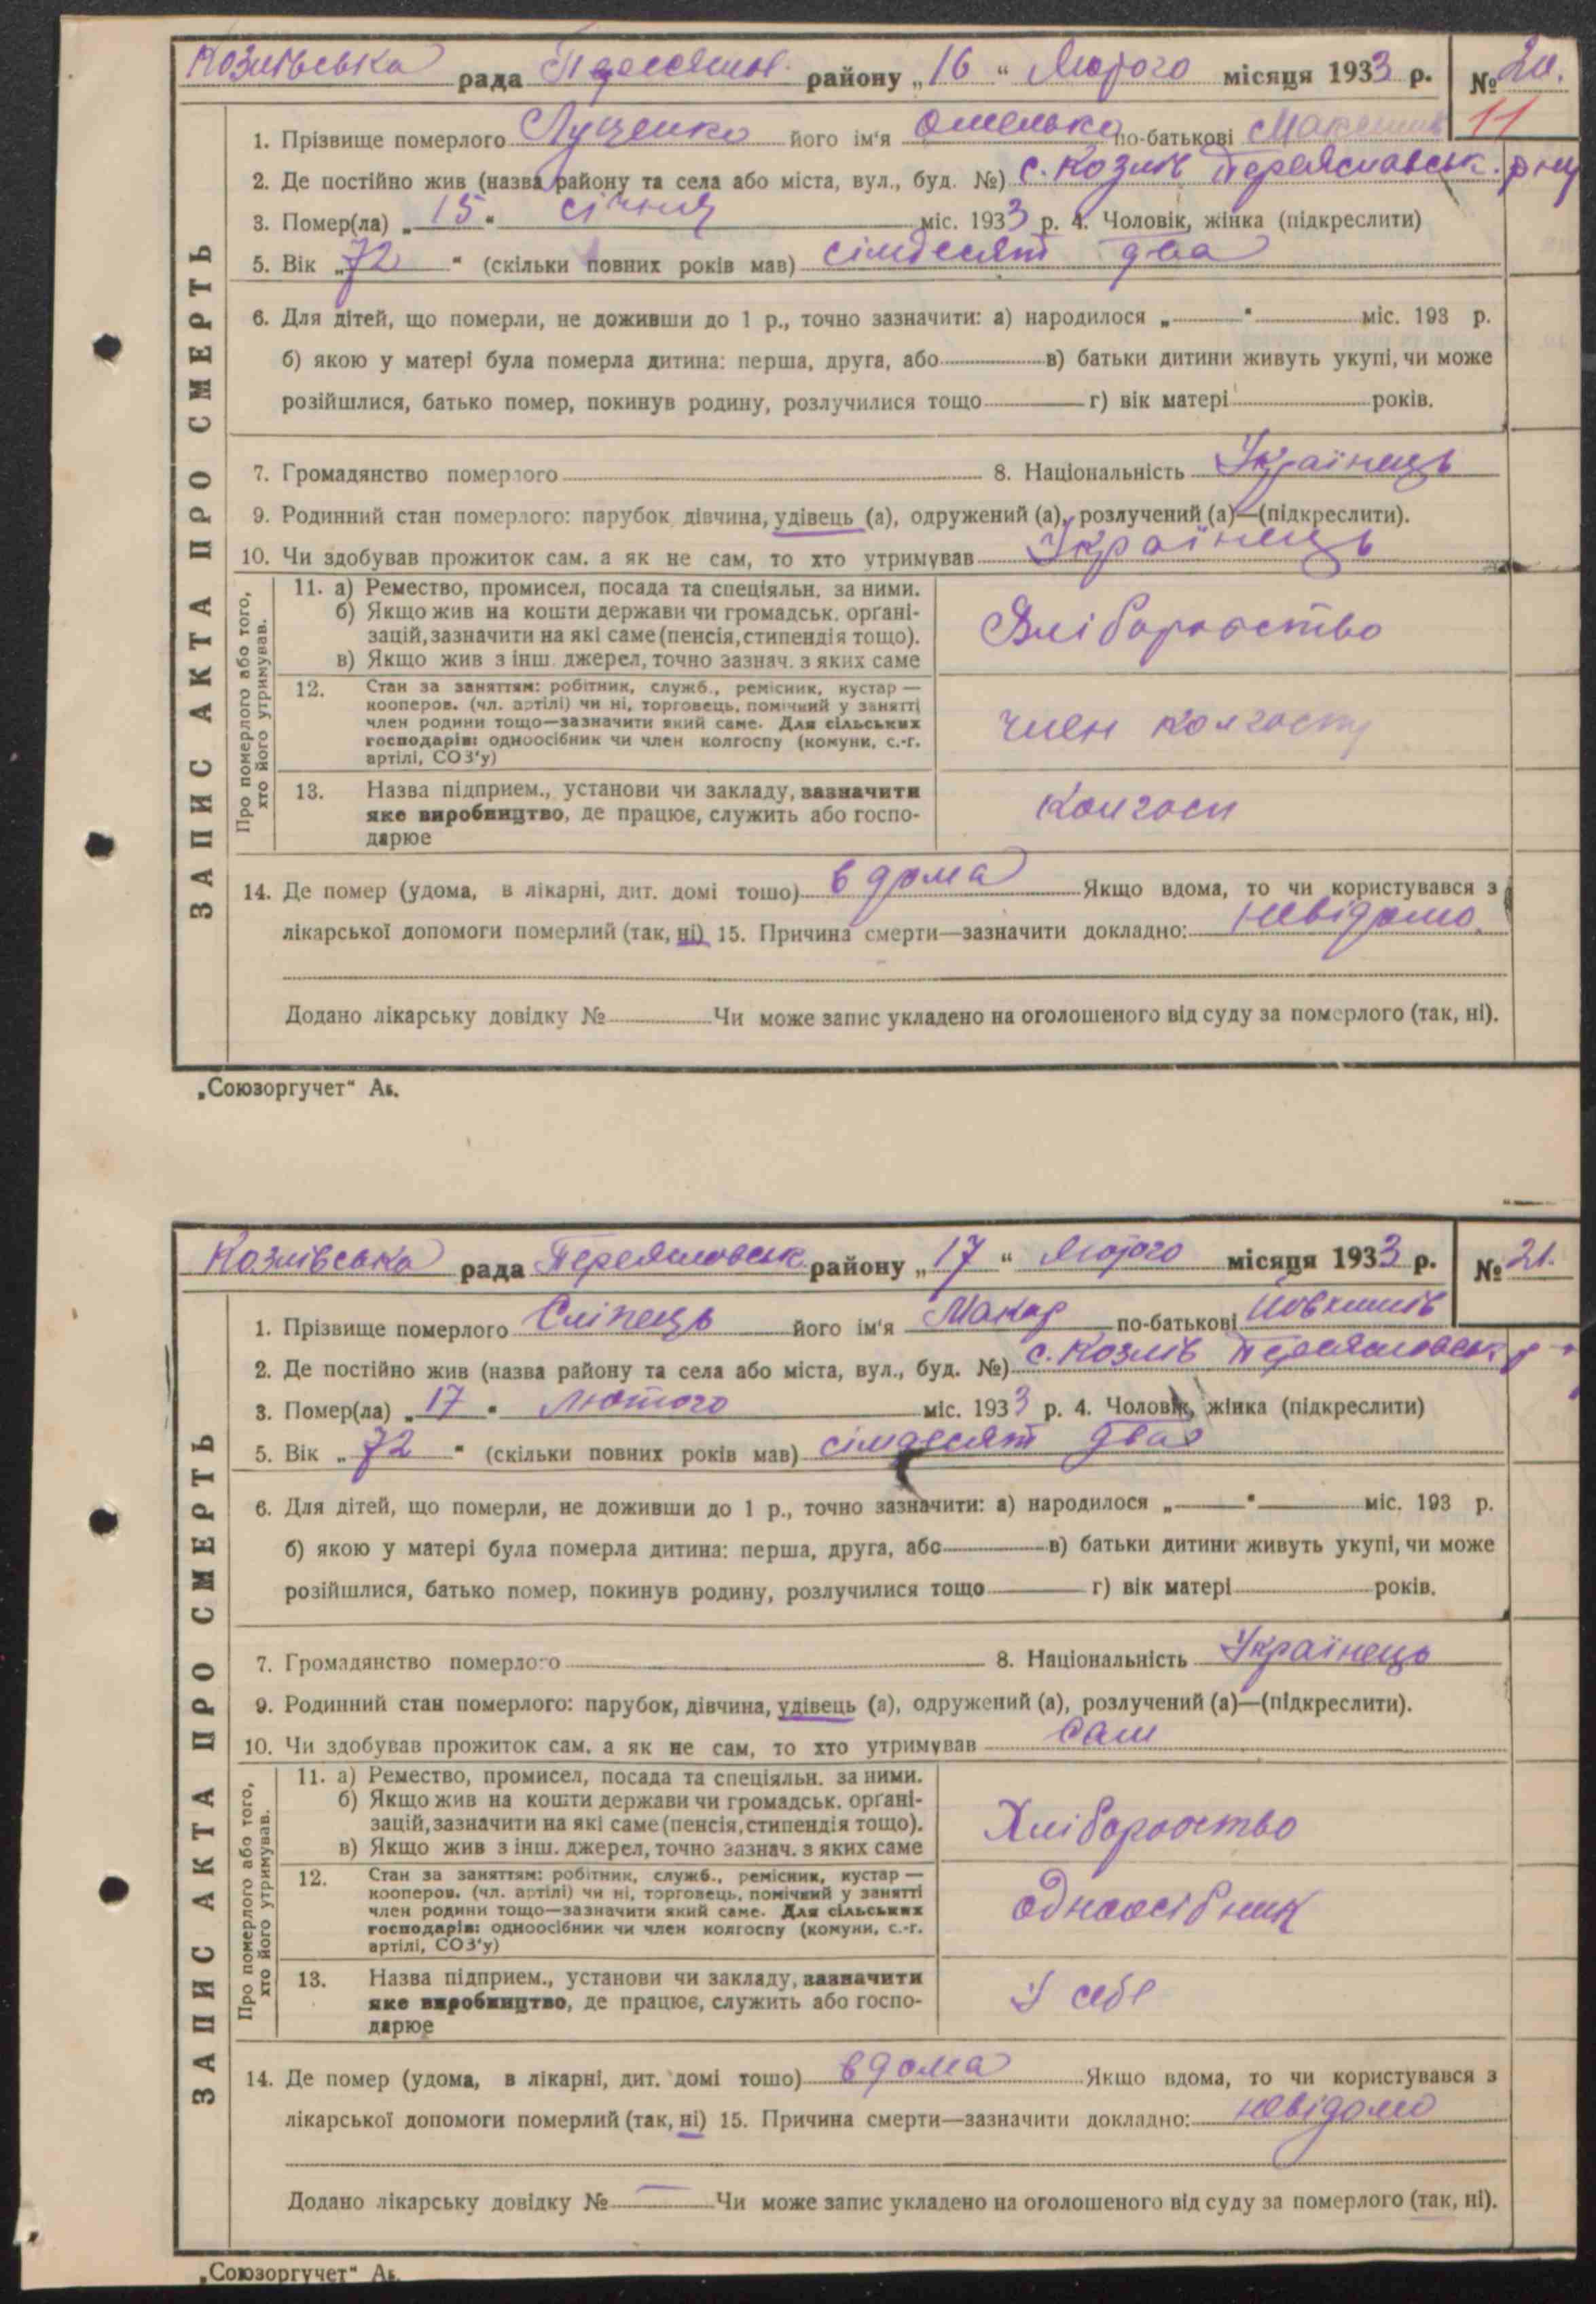 Козлівська рада Переяслов. району „16“ Лютого місяця 1933 р. № 20.
11
1. Прізвище померлого Луценко його ім'я Омелько по-батькові Максимів
2. Де постійно жив (назва району та села або міста, вул., буд. №) с. Козлів Переяславськ. р-ну
3. Помер(ла) „15“ січня міс. 1933 р. 4. Чоловік, жінка (підкреслити)
5. Вік „72“ (скільки повних років мав) сімдесят два
6. Для дітей, що померли, не доживши до 1 р., точно зазначити: а) народилося „ “ міс. 193 р.
б) якою у матері була померла дитина: перша, друга, або в) батьки дитини живуть укупі, чи може
розійшлися, батько помер, покинув родину, розлучилися тощо г) вік матері років.
7. Громадянство померлого 8. Національність Українець
9. Родинний стан померлого: парубок дівчина, удівець (а), одружений (а), розлучений (а)—(підкреслити).
10. Чи здобував прожиток сам, а як не сам, то хто утримував Українець
11. а) Ремество, промисел, посада та спеціяльн. за ними.
б) Якщо жив на кошти держави чи громадськ. орґані-
зацій, зазначити на які саме (пенсія, стипендія тощо).
в) Якщо жив з інш. джерел, точно зазнач. з яких саме
Хліборобство
12. Стан за заняттям: робітник, служб., ремісник, кустар —
кооперов. (чл. артілі) чи ні, торговець, помічний у занятті
член родини тощо—зазначити який саме. Для сільських
господарів: одноосібник чи член колгоспу (комуни, с.-г.
артілі, СОЗ'у)
член колгоспу
13. Назва підприєм., установи чи закладу, зазначити
яке виробництво, де працює, служить або госпо-
дарює
колгосп
14. Де помер (удома, в лікарні, дит. домі тощо) вдома Якщо вдома, то чи користувався з
лікарської допомоги померлий (так, ні) 15. Причина смерти—зазначити докладно: невідомо.
Додано лікарську довідку № Чи може запис укладено на оголошеного від суду за померлого (так, ні).
ЗАПИС АКТА ПРО СМЕРТЬ
Про померлого або того,
хто його утримував.
„Союзоргучет“ Ак.
Козлівська рада Переясловськ району „17“ Лютого місяця 1933 р. № 21.
1. Прізвище померлого Сліпець його ім'я Макар по-батькові Йовхимів
2. Де постійно жив (назва району та села або міста, вул., буд. №) с. Козлів Переясловськ р-
3. Помер(ла) „17“ Лютого міс. 1933 р. 4. Чоловік, жінка (підкреслити)
5. Вік „72“ (скільки повних років мав) сімдесят два
6. Для дітей, що померли, не доживши до 1 р., точно зазначити: а) народилося „ “ міс. 193 р.
б) якою у матері була померла дитина: перша, друга, або в) батьки дитини живуть укупі, чи може
розійшлися, батько помер, покинув родину, розлучилися тощо г) вік матері років.
7. Громадянство померлого 8. Національність Українець
9. Родинний стан померлого: парубок, дівчина, удівець (а), одружений (а), розлучений (а)—(підкреслити).
10. Чи здобував прожиток сам, а як не сам, то хто утримував сам
11. а) Ремество, промисел, посада та спеціяльн. за ними.
б) Якщо жив на кошти держави чи громадськ. орґані-
зацій, зазначити на які саме (пенсія, стипендія тощо).
в) Якщо жив з інш. джерел, точно зазнач. з яких саме
Хліборобство
12. Стан за заняттям: робітник, служб., ремісник, кустар —
кооперов. (чл. артілі) чи ні, торговець, помічний у занятті
член родини тощо—зазначити який саме. Для сільських
господарів: одноосібник чи член колгоспу (комуни, с.-г.
артілі, СОЗ'у)
одноосібник
13. Назва підприєм., установи чи закладу, зазначити
яке виробництво, де працює, служить або госпо-
дарює
У себе
14. Де помер (удома, в лікарні, дит. домі тощо) вдома Якщо вдома, то чи користувався з
лікарської допомоги померлий (так, ні) 15. Причина смерти—зазначити докладно: невідомо
Додано лікарську довідку № — Чи може запис укладено на оголошеного від суду за померлого (так, ні).
ЗАПИС АКТА ПРО СМЕРТЬ
Про померлого або того,
хто його утримував.
„Союзоргучет“ Ак.